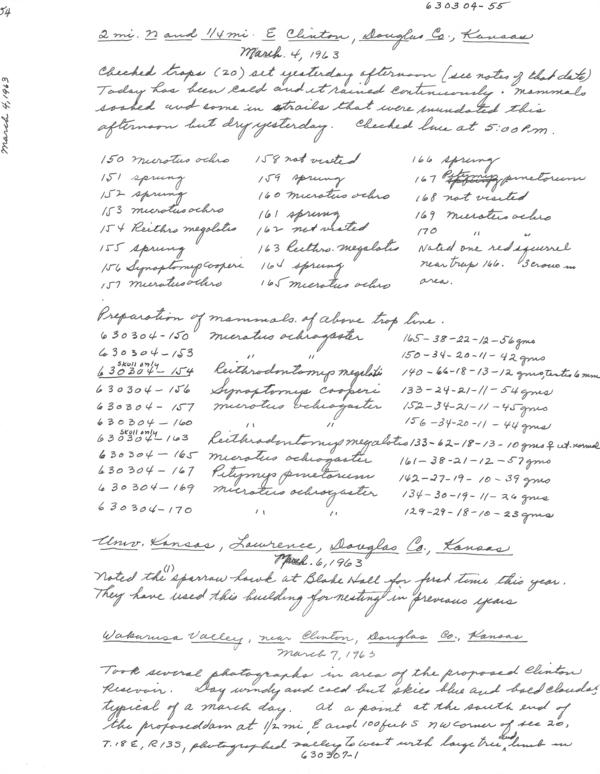 54
630304-55
March 4, 1963
2 mi. N and 1/4 mi. E Clinton, Douglas Co., Kansas
March. 4, 1963
Checked traps (20) set yesterday afternoon (see notes of that date)
Today has been cold and it rained continuously. Mammals
soaked and some in trails that were inundated this
afternoon but dry yesterday. Checked line at 5:00 P.m.
150 microtus ochro 158 not visited 166 sprung
151 sprung 159 sprung 167 Pitymys pinetorum
152 sprung 160 microtus ochro 168 not visited
153 microtus ochro 161 sprung 169 Microtus ochro
154 Reithro megalotis 162 not visited 170 " "
155 sprung 163 Reithro. megalotis Noted one red squirrel
156 Synaptomys cooperi 164 sprung near trap 166. 3 crows in
157 microtus ochro 165 microtus ochro area.
Preparation of mammals of above trap line.
630304-150 microtus ochrogaster 165-38-22-12-56 gms
630304-153 " " 150-34-20-11-42 gms
skull only
630304-154 Reithrodontomys megalotis 140-66-18-13-12 gms, testis 6 mm
630304-156 Synaptomys cooperi 133-24-21-11-54 gms
630304-157 microtus ochrogaster 152-34-21-11-45 gms
630304-160 " " 156-34-20-11-44 gms
skull only
630304-163 Reithrodontomys megalotis 133-62-18-13-10 gms ♀ ut. normal
630304-165 microtus ochrogaster 161-38-21-12-57 gms
630304-167 Pitymys pinetorum 142-27-19-10-39 gms
630304-169 microtus ochrogaster 134-30-19-11-26 gms
630304-170 " " 129-29-18-10-23 gms
Univ. Kansas, Lawrence, Douglas Co., Kansas
March. 6, 1963
Noted the (1) sparrow hawk at Blake Hall for first time this year.
They have used this building for nesting in previous years
Wakarusa Valley, near Clinton, Douglas Co., Kansas
March 7, 1963
Took several photographs in area of the proposed Clinton
Reservoir. Day windy and cold but skies blue and bold clouds,
typical of a march day. At a point at the south end of
the proposed dam at 1/2 mi, E and 100 feet S NW corner of sec 20,
T.18 E, R13S, photographed valley to west with large tree limb in
630307-1